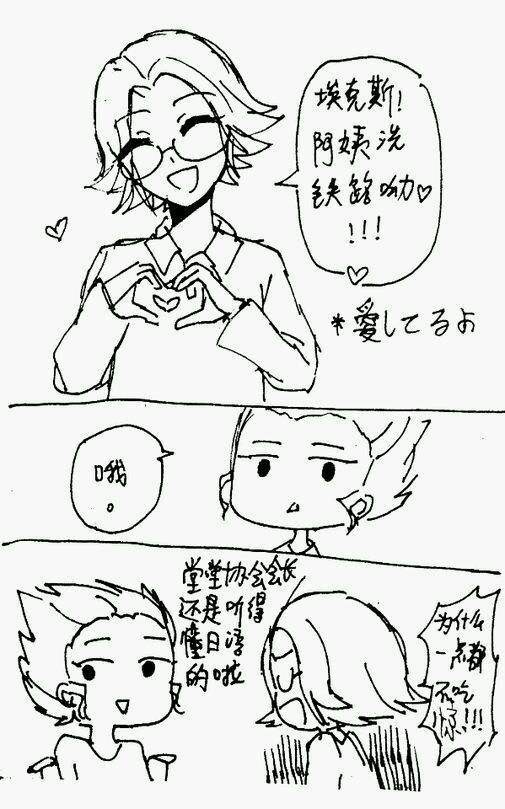 埃克斯!
阿姨洗
铁路呦♡
!!!
*愛してるよ
哦
。
堂堂协会会长
还是听得
懂日语
的啦
为什么
一点都
不吃
惊!!!